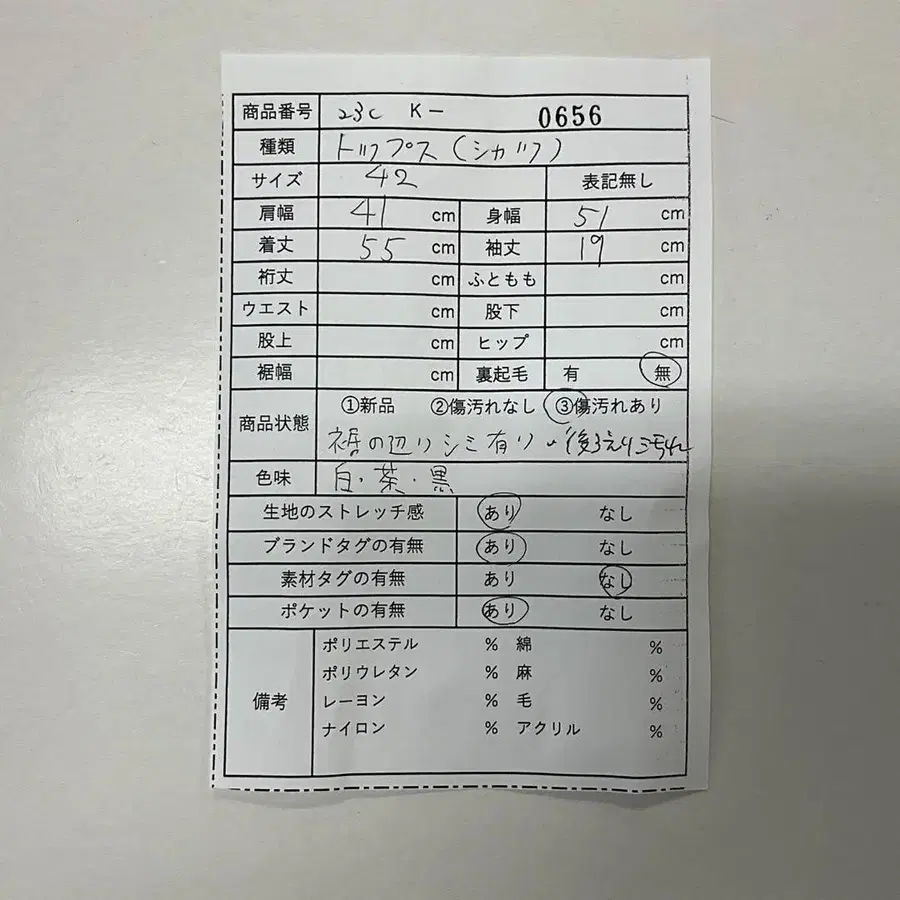 商品番号 23C K- 0656
種類 トップス(シカツフ)
サイズ 42 表記無し
肩幅 41 cm 身幅 51 cm
着丈 55 cm 袖丈 19 cm
裄丈 cm ふともも cm
ウエスト cm 股下 cm
股上 cm ヒップ cm
裾幅 cm 裏起毛 有 無
商品状態 ①新品 ②傷汚れなし ③傷汚れあり
裾の辺りシミ有り 後ろえり汚れ
色味 白・茶・黒
生地のストレッチ感 あり なし
ブランドタグの有無 あり なし
素材タグの有無 あり なし
ポケットの有無 あり なし
備考
ポリエステル % 綿 %
ポリウレタン % 麻 %
レーヨン % 毛 %
ナイロン % アクリル %